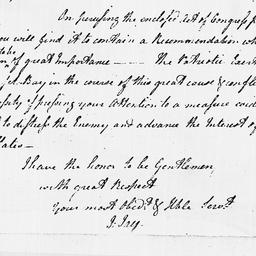 On perusing the enclosed act of Congress
you will find it to contain a Recommendation
take
of great Importance — the Patriotic
Bay in the course of this great cause &
of pressing your Attention to a measure
to distress the Enemy and advance the Interest of
States —
I have the honor to be Gentlemen
with great Respect
Your most Obedt. & Hble Servt.
J. Jay.